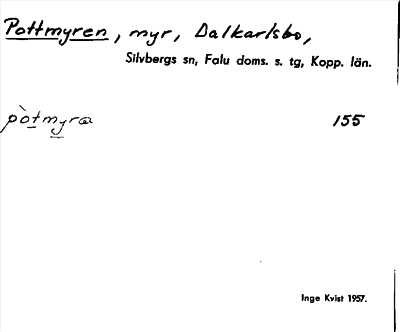 Pottmyren, myr, Dalkarlsbo,
Silvbergs sn, Falu doms. s. tg, Kopp. län.
pòtmyræ 155
Inge Kvist 1957.